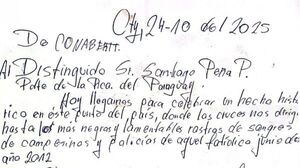 Cty, 24-10 del 2025
De CONABEATT.
Al Distinguido Sr. Santiago Peña P.
Pdte de la Rca. del Paraguay.
Hoy llegamos para celebrar un hecho histó
rico en este punto del país, donde las cruces nos dirige
hasta los más negros y lamentables rastros de sangres
de campesinos y policías de aquel fatídico junio de
año 2012